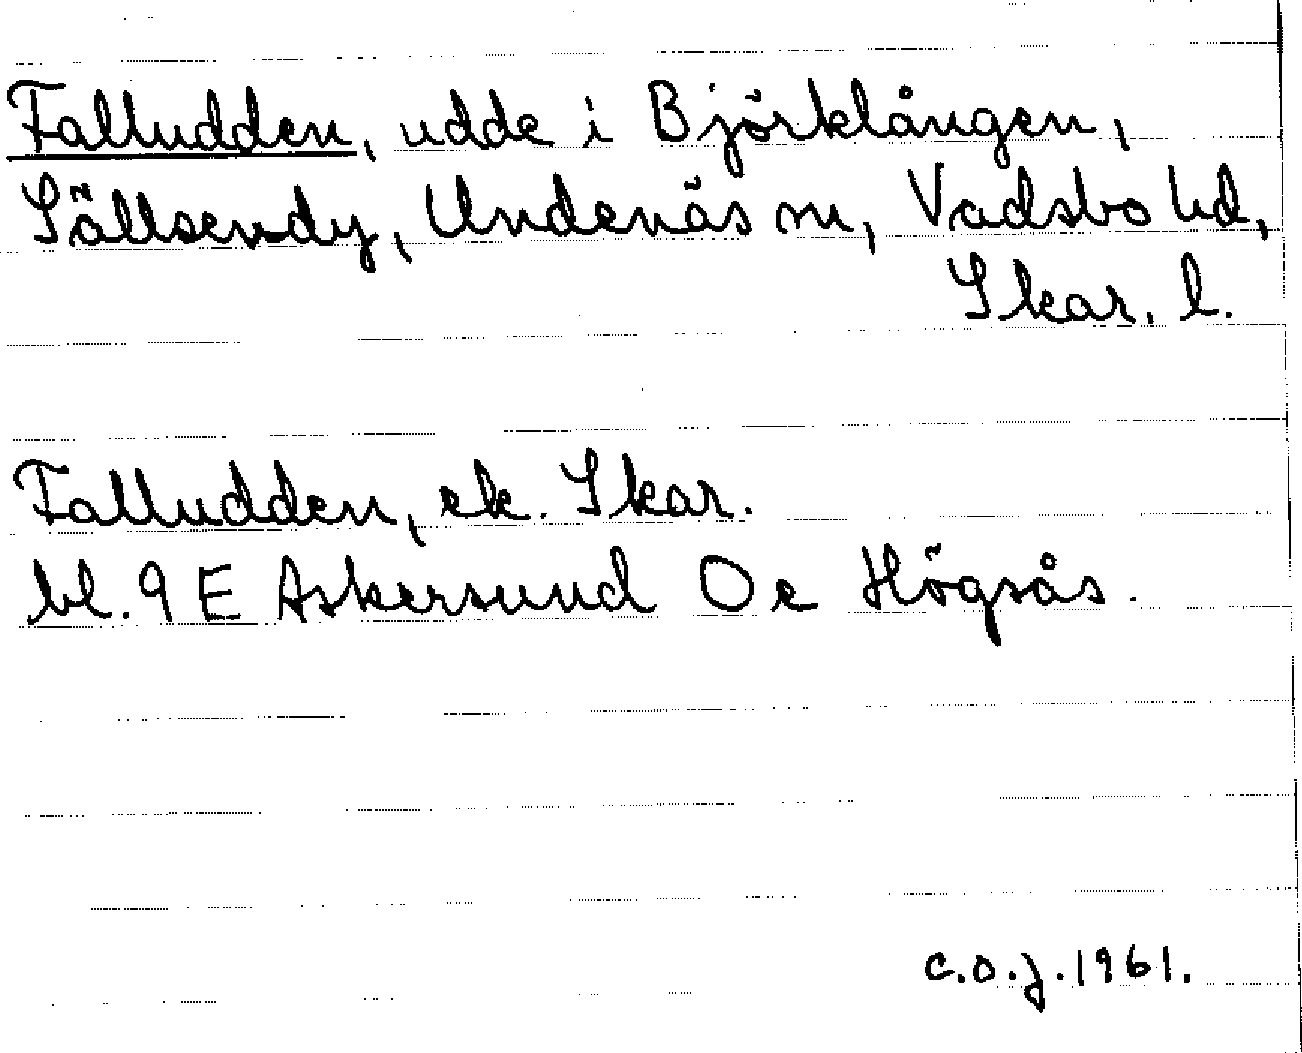 Falludden, udde i Björklången,
Sällsendy, Undenäs sn, Vadsbo hd,
Skar. l.
Falludden, ek. Skar.
bl. 9 E Askersund Oe Högsås.
c.o.j. 1961.